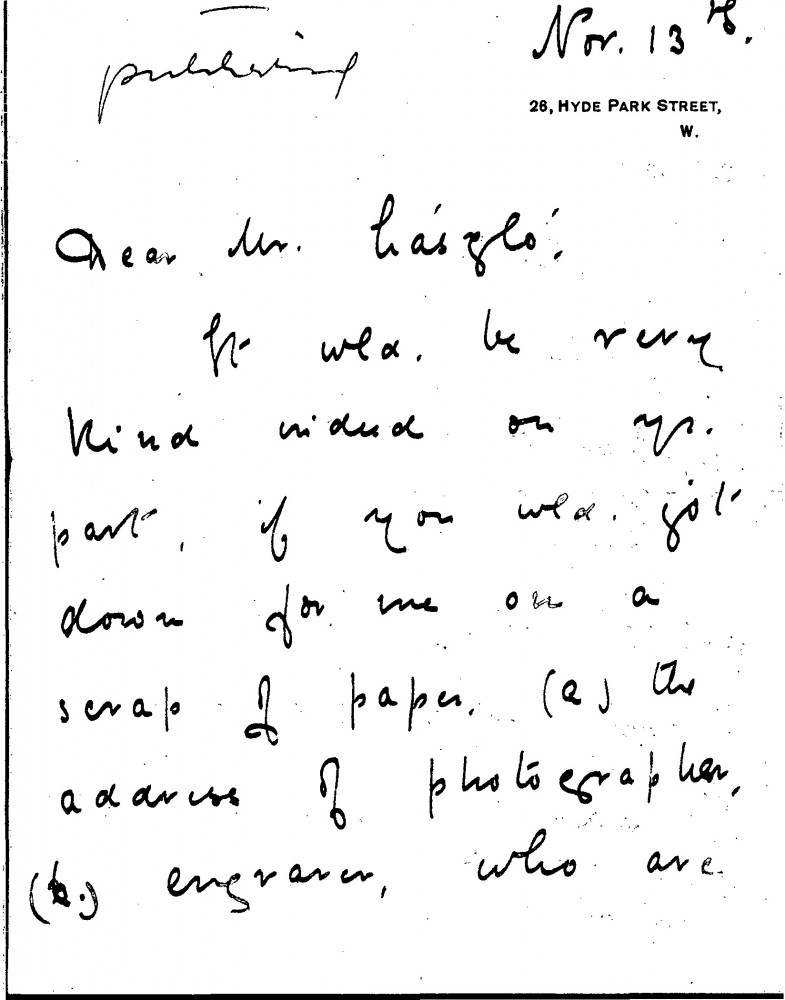 Nov. 13th.
publishing
26, HYDE PARK STREET,
W.
Dear Mr. László,
It wld. be very
kind indeed on yr.
part, if you wld. jot
down for me on a
scrap of paper, (a) the
address of photographer,
(b.) engraver, who are